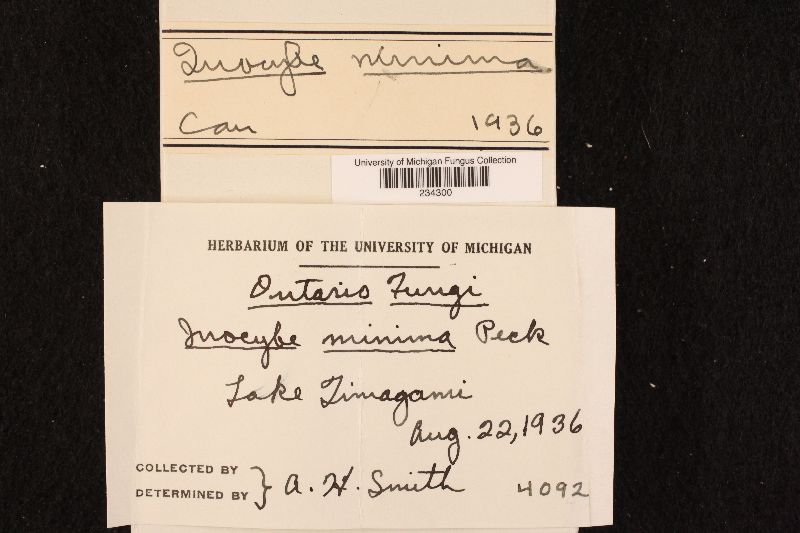 Inocybe minima
Can 1936
University of Michigan Fungus Collection
234300
HERBARIUM OF THE UNIVERSITY OF MICHIGAN
Ontario Fungi
Inocybe minima Peck
Lake Timagami
Aug. 22, 1936
COLLECTED BY
DETERMINED BY } A. H. Smith 4092